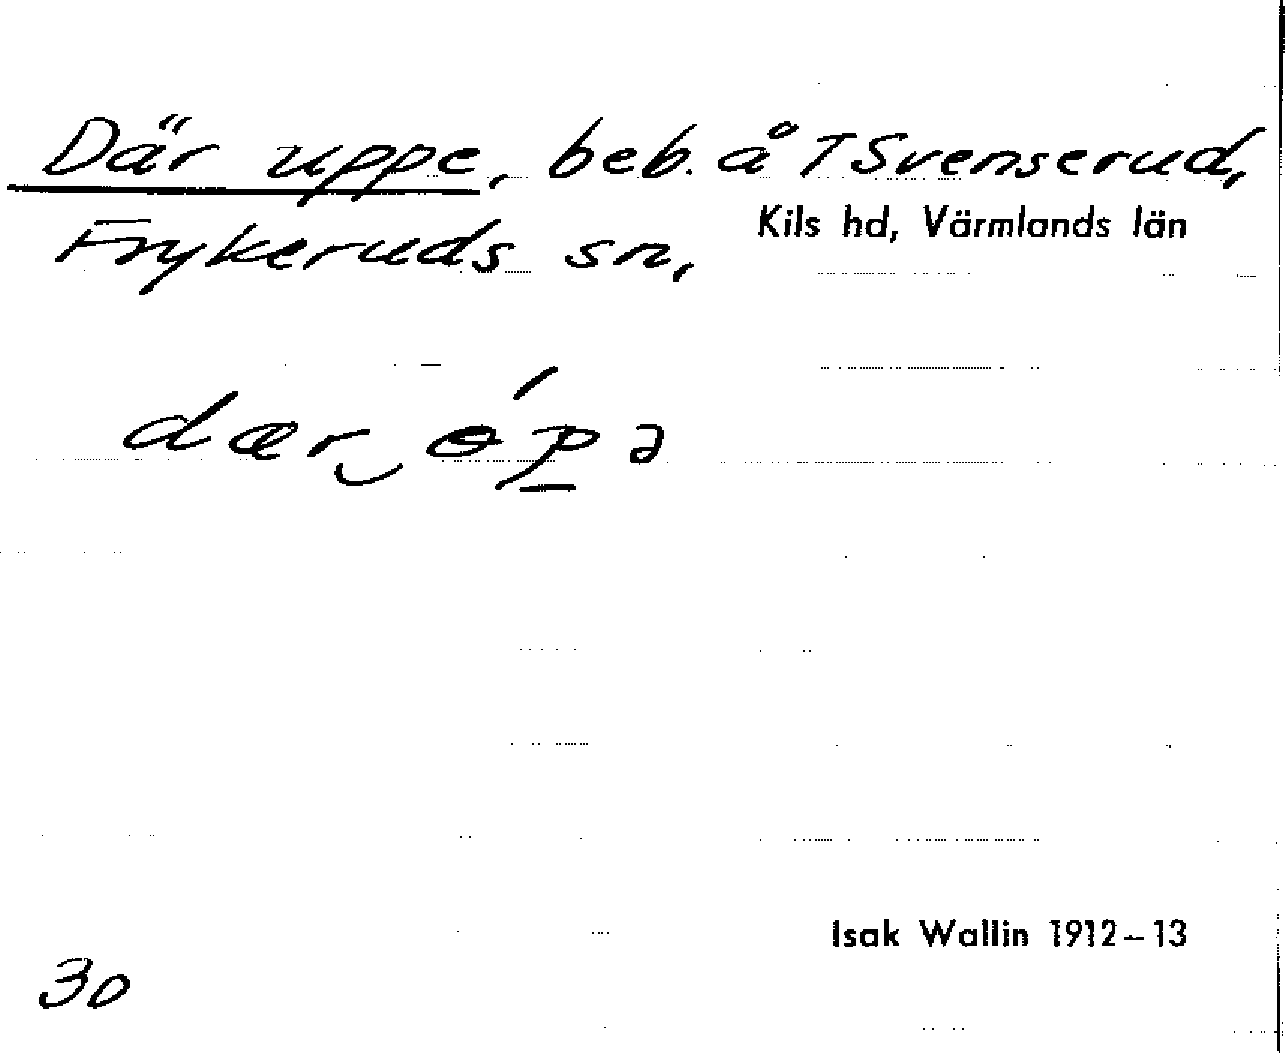 Där uppe, beb. å TSvenserud,
Frykeruds sn, Kils hd, Värmlands län
dær‿ɵ́p̲ə
Isak Wallin 1912–13
30